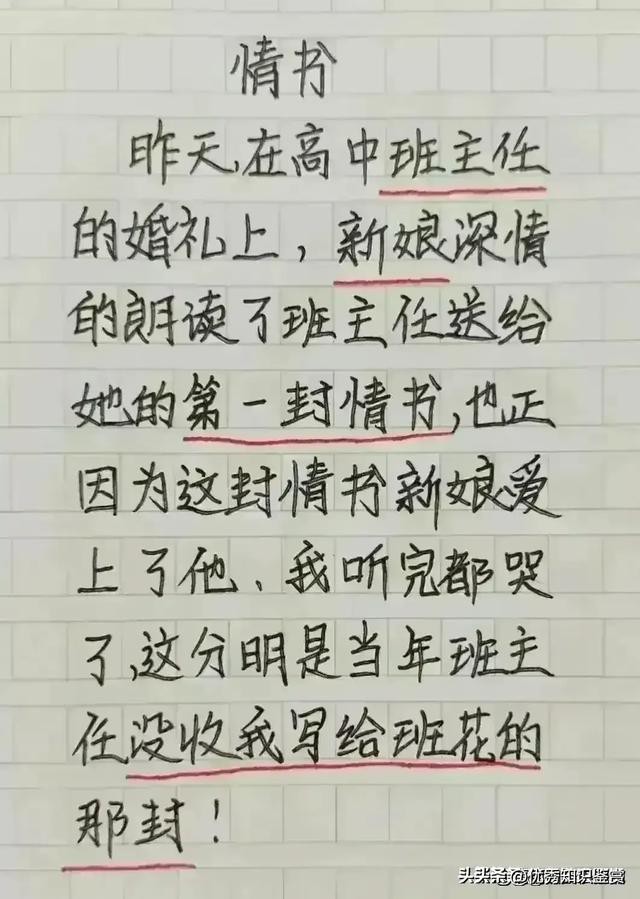 情书
昨天,在高中班主任
的婚礼上，新娘深情
的朗读了班主任送给
她的第一封情书,也正
因为这封情书新娘爱
上了他、我听完都哭
了,这分明是当年班主
任没收我写给班花的
那封！
头条@优秀知识鉴赏